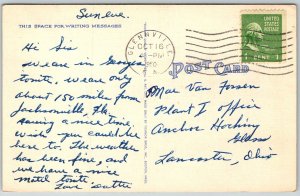 Sun eve.
THIS SPACE FOR WRITING MESSAGES
Hi Sis
We are in Georgia
tonite, we are only
about 150 miles from
Jacksonville Fla.
having a nice time,
wish you could be
here to. The weather
has been fine, and
we have a nice
motel tonite.
Love
GLENNVILLE
OCT 16
-PM
GA
UNITED STATES
POSTAGE
1 CENT 1
POST CARD
Mae Van Fossen
Plant I office
Anchor Hocking
Glass
Lancaster, Ohio